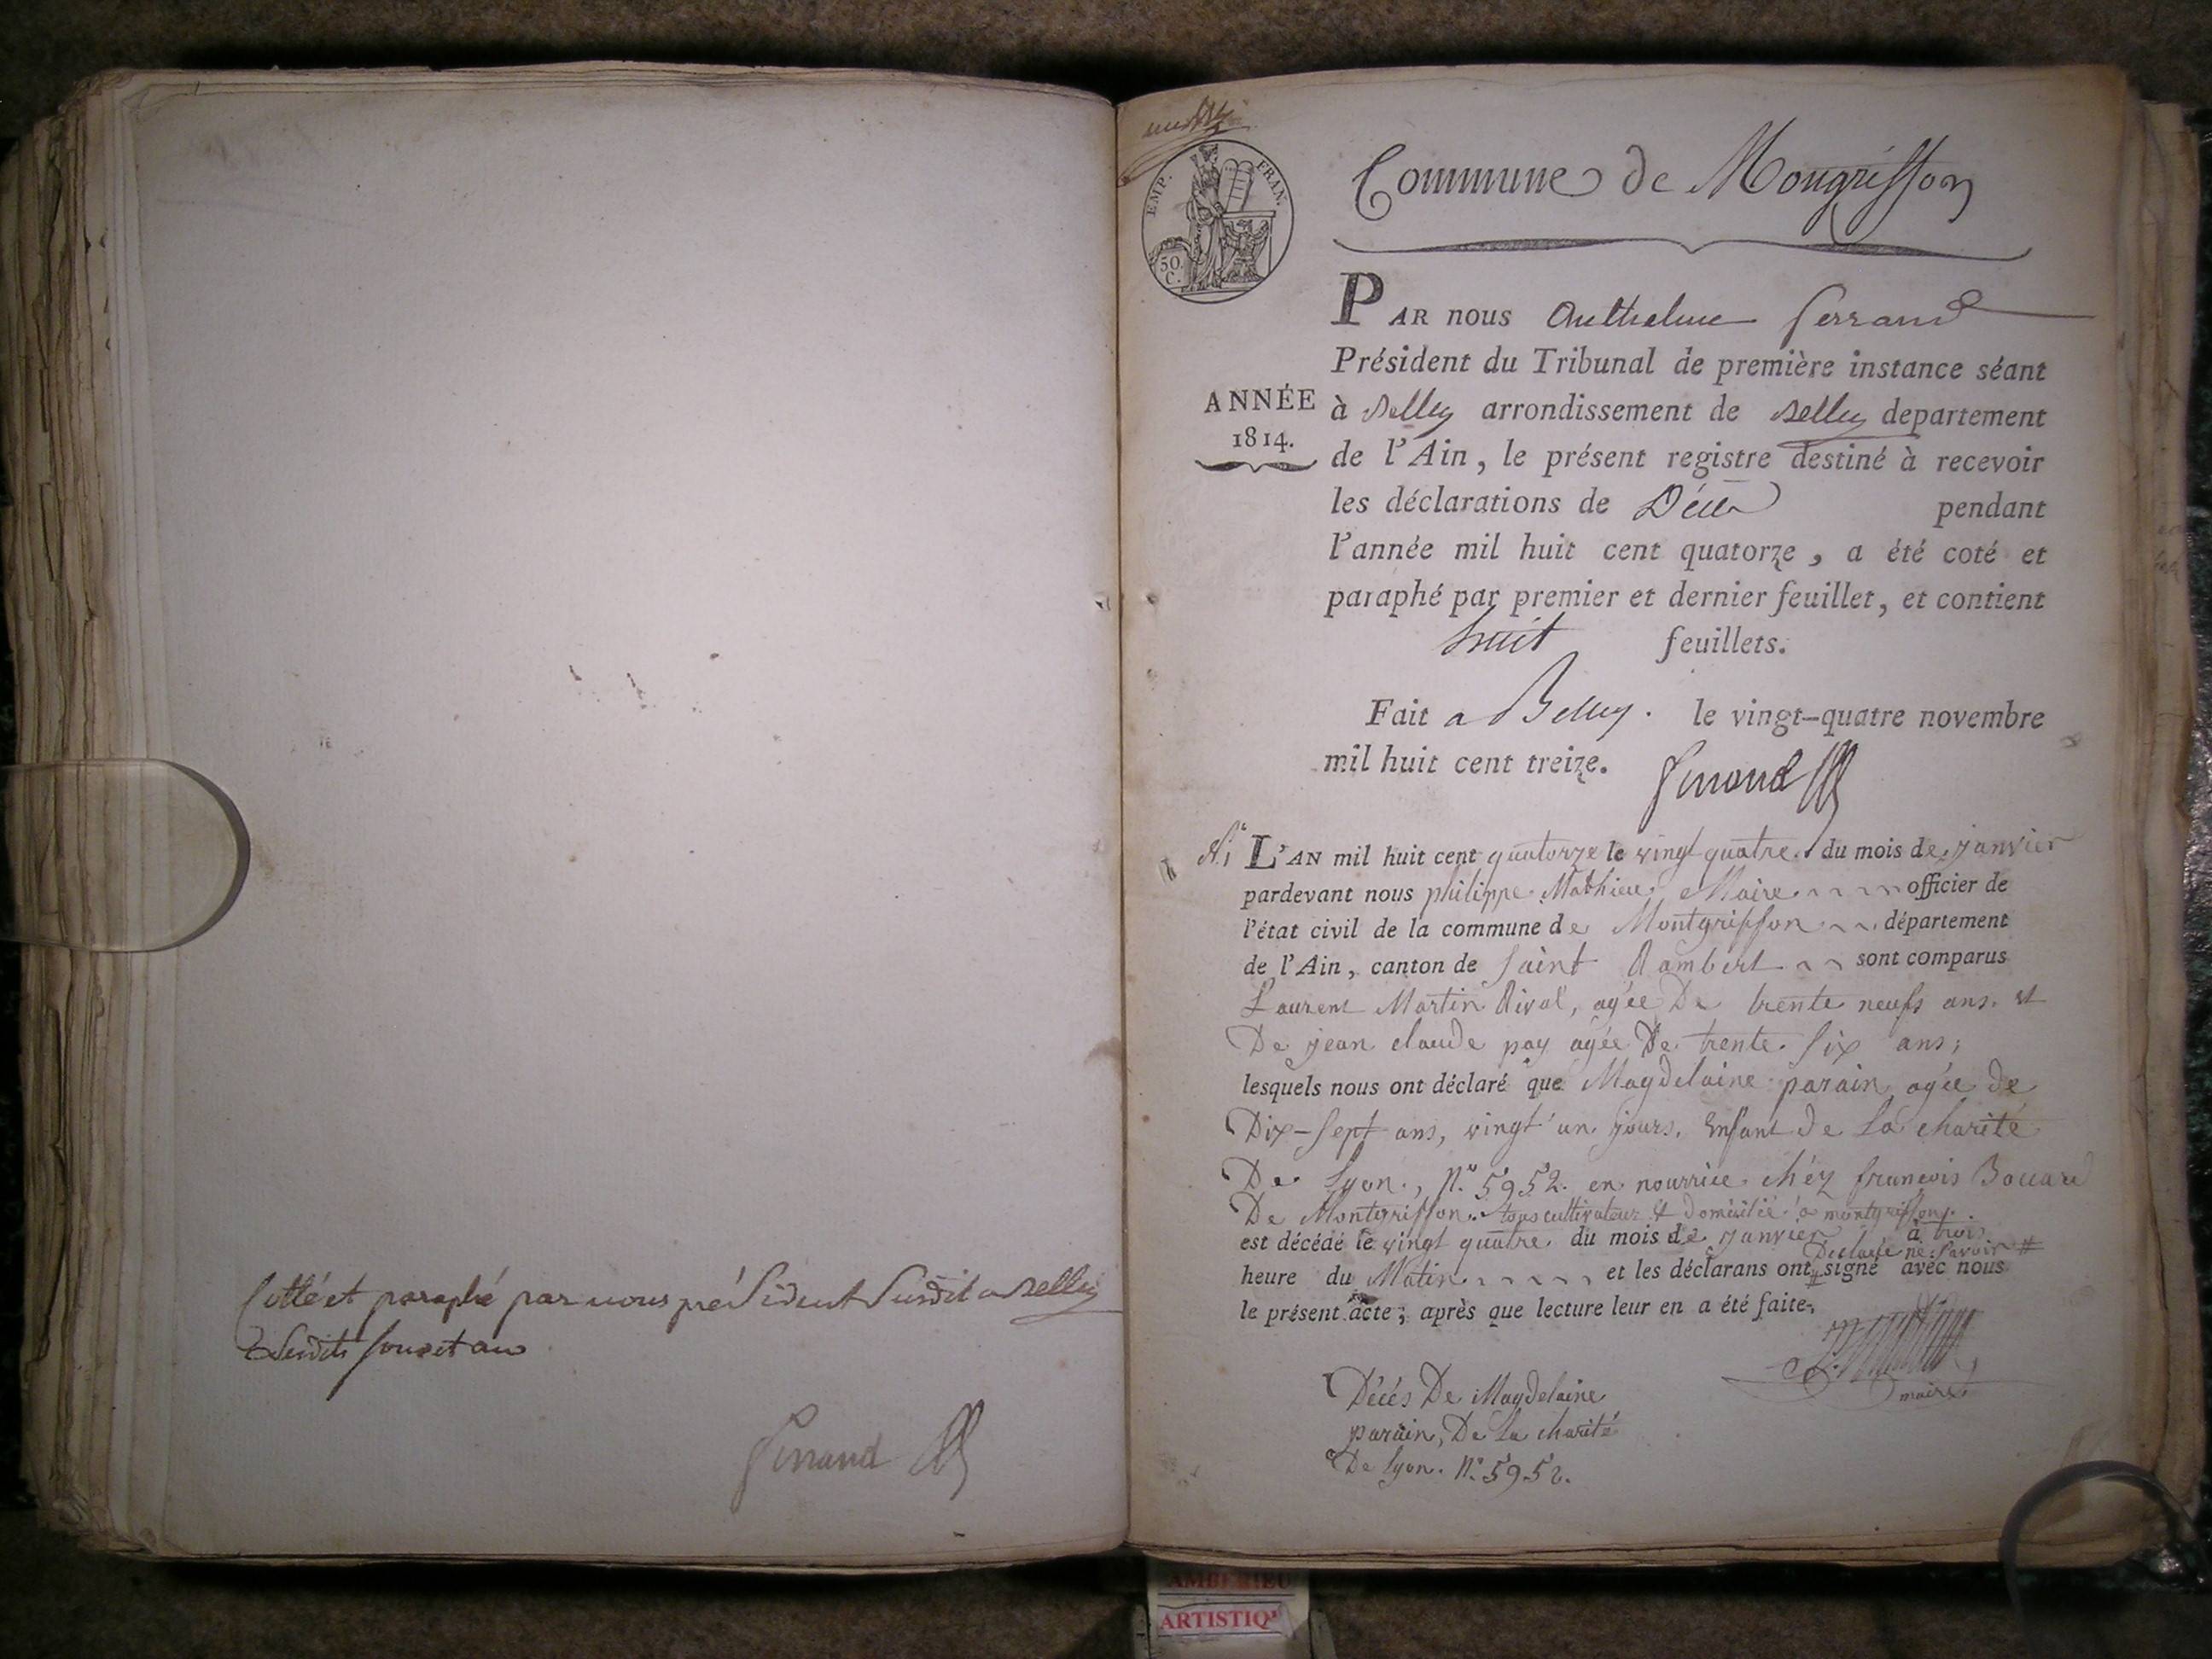 Cotté et paraphé par nous président susdit a Belley
lesdits jour et an
Ferrand
EMP. FRAN.
50.
C.
Commune de Mongrisson
PAR nous Anthelme Ferrand
Président du Tribunal de première instance séant
ANNÉE
1814.
à Belley arrondissement de Belley departement
de l'Ain, le présent registre destiné à recevoir
les déclarations de Décès pendant
l'année mil huit cent quatorze, a été coté et
paraphé par premier et dernier feuillet, et contient
huit feuillets.
Fait a Belley. le vingt-quatre novembre
mil huit cent treize. Ferrand
N.º 1 L'AN mil huit cent quatorze le vingt quatre du mois de janvier
pardevant nous philippe Mathieu, Maire officier de
l'état civil de la commune de Montgrisson département
de l'Ain, canton de Saint Rambert sont comparus
Laurent Martin Rival, agée De trente neufs ans. et
De jean claude pay agée De trente six ans;
lesquels nous ont déclaré que Magdelaine parain agée de
Dix-sept ans, vingt un jours, Enfant de La charité
De Lyon, N.º 5952. en nourrice chéz francois Bouard
De Montgrisson. tous cultivateur & domicilié à montgrisson.
est décédé le vingt quatre du mois de janvier à trois
heure du Matin et les déclarans ont # signé avec nous
Declarée ne savoir #
le présent acte, après que lecture leur en a été faite.
maire
Décés De Magdelaine
parain, De La charité
De Lyon. N.º 5952.
AMBERIEU
ARTISTIQ'